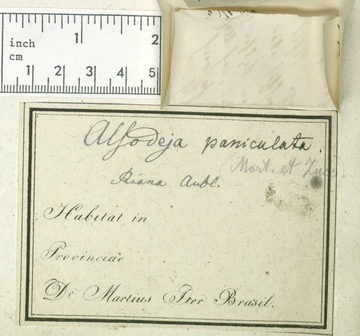 inch 1 2
cm 1 2 3 4 5
Alsodeja paniculata.
Mart. et Zucc.
Riana Aubl.
Habitat in
Provinciae
Dr. Martius Iter Brasil.